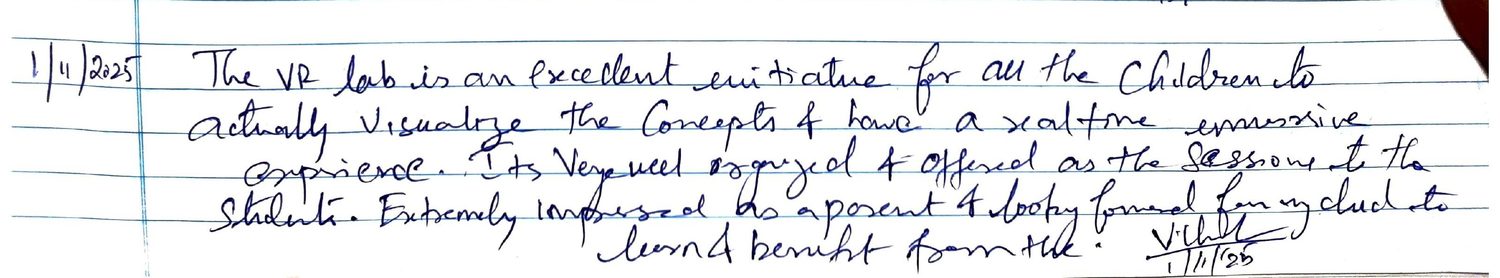 1/11/2025 The VR lab is an Excellent initiative for all the Children to
actually Visualize the Concepts & have a real time immersive
experience. Its Very well organized & offered as the Sessions to the
Students. Extremely impressed as a parent & looking forward for my child to
learn & benefit from the.
1/11/25